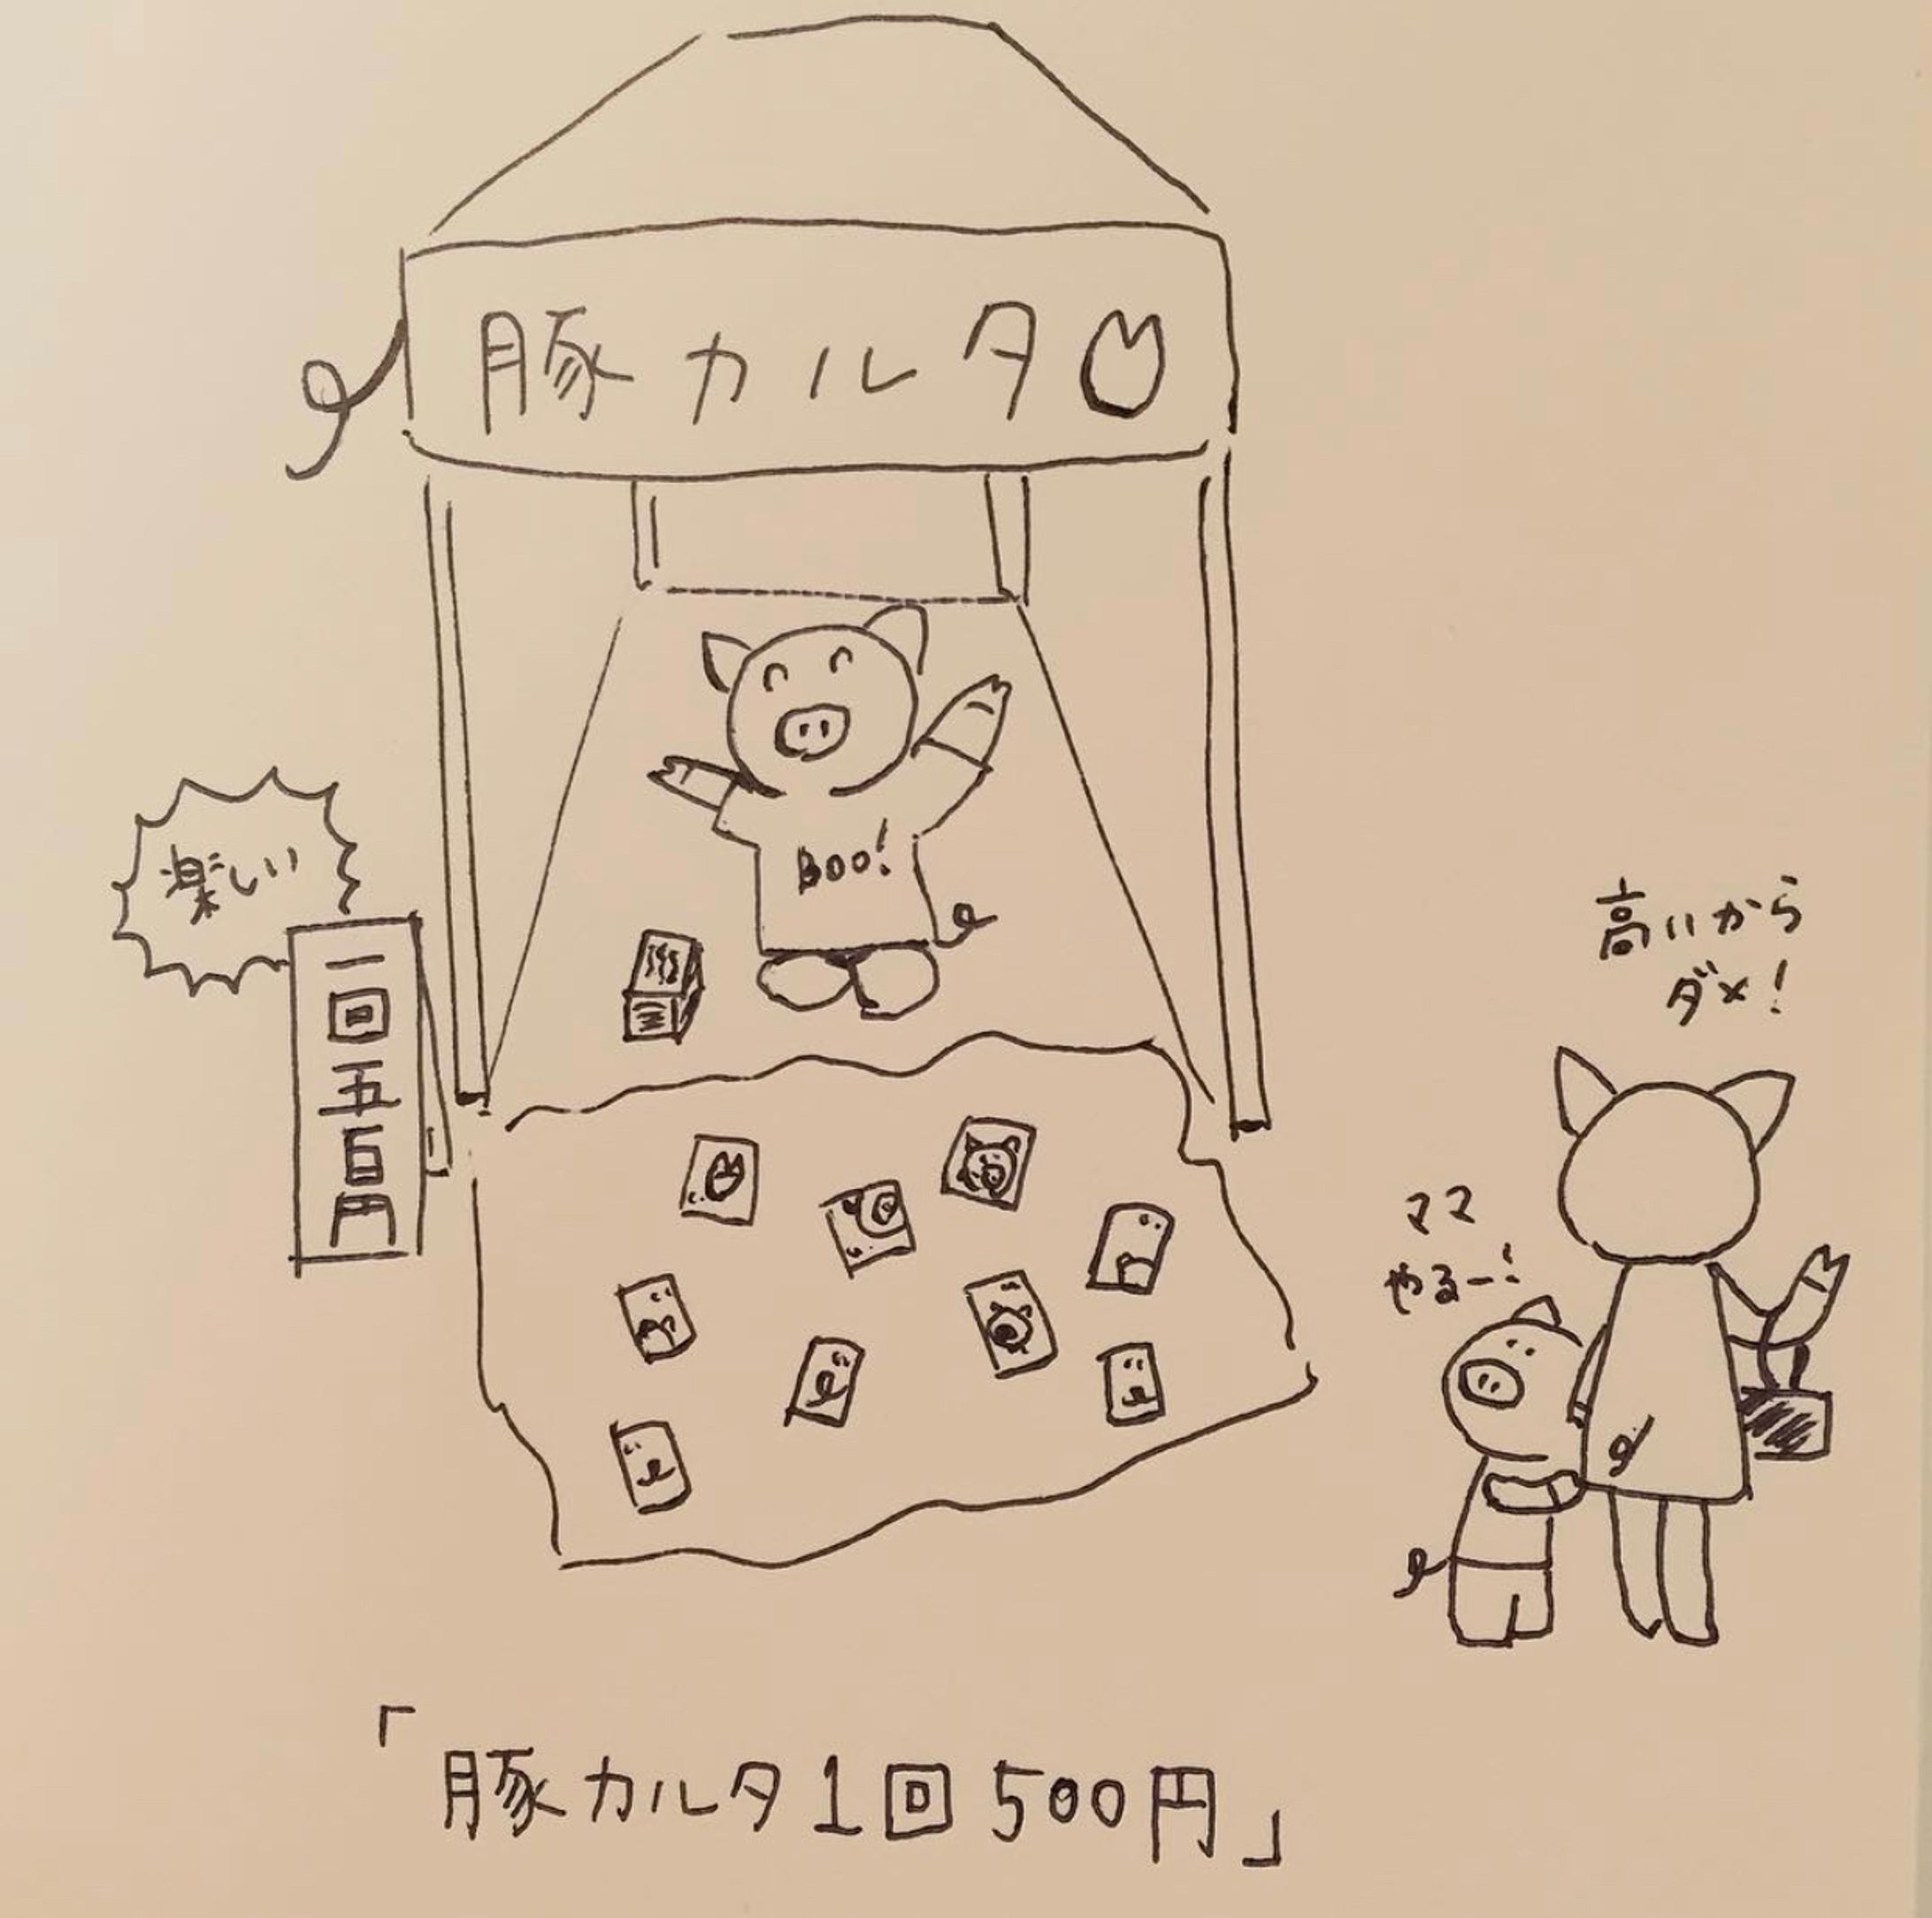 豚カルタ
BOO!
楽しい
一回五百円
高いから
ダメ!
ママ
やるー!
「豚カルタ1回500円」